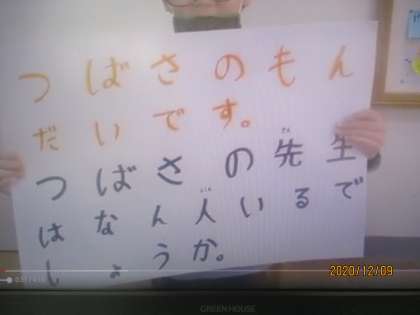 つばさのもん
だいです。
つばさの先生
はなん人いるで
しょうか。
2020/12/09
GREEN HOUSE